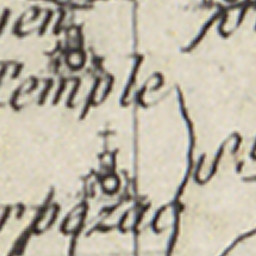 yen
Temple
S.
rpazac